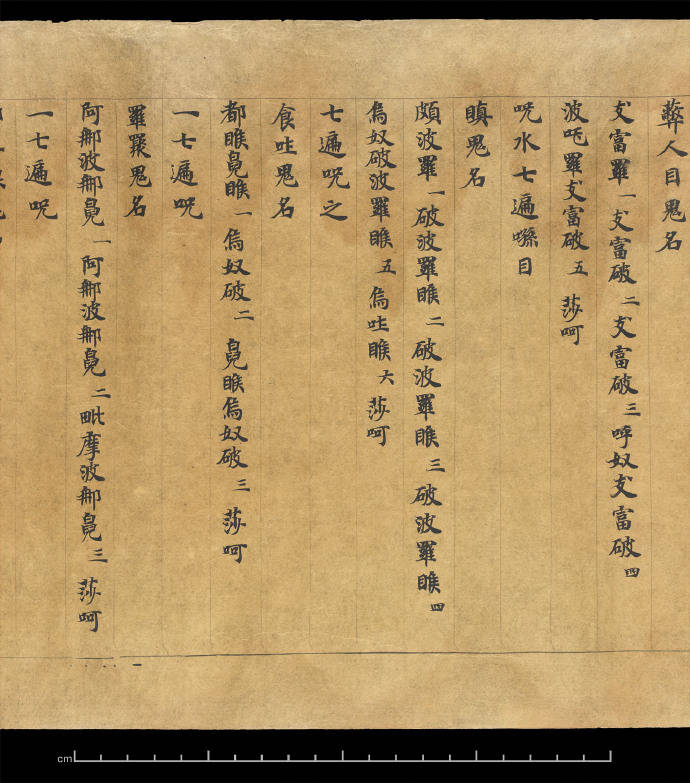 弊人目鬼名
攴富羅 一 攴富破 二 攴富破 三 呼奴攴富破 四
波吒羅攴富破 五 莎呵
呪水七遍噀目
瞋鬼名
頗波羅 一 破波羅睺 二 破波羅睺 三 破波羅睺 四
烏奴破波羅睺 五 烏吐睺 六 莎呵
七遍呪之
食吐鬼名
都睺㲋睺 一 烏奴破 二 㲋睺烏奴破 三 莎呵
一七遍呪
羅鬼名
阿那波那㲋 一 阿那波那㲋 二 毗摩波那㲋 三 莎呵
一七遍呪
cm